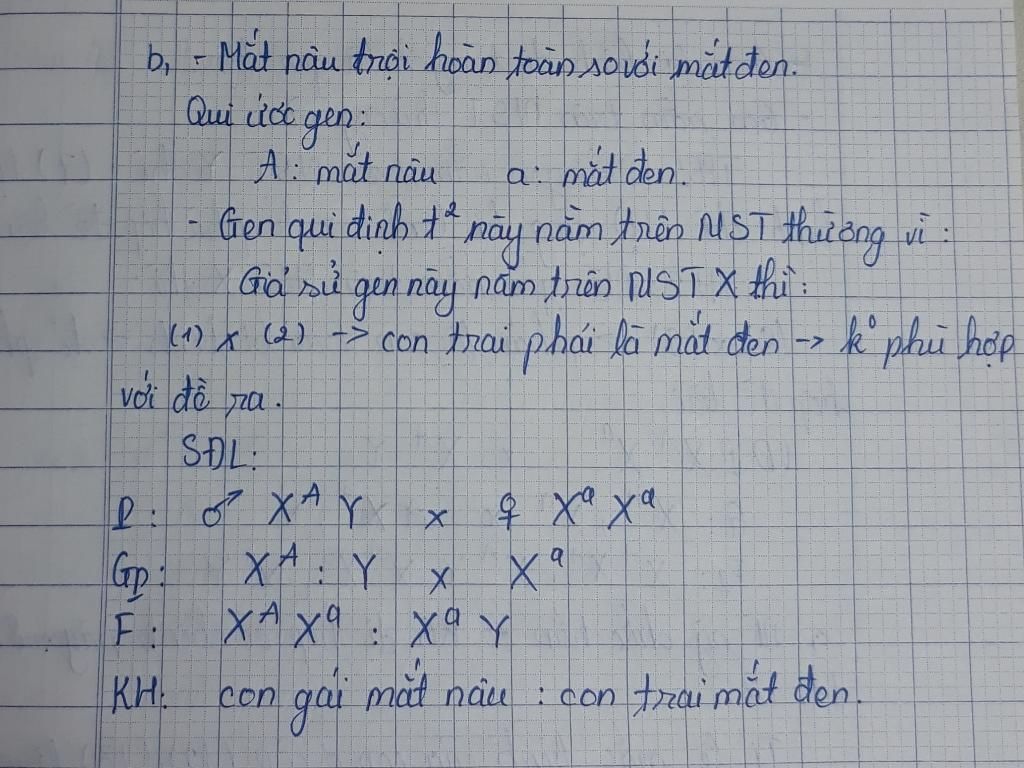 b, - Mắt nâu trội hoàn toàn so với mắt đen.
Qui ước gen:
A: mắt nâu a: mắt đen.
- Gen qui định t² này nằm trên NST thường vì:
Giả sử gen này nằm trên NST X thì:
(1) x (2) -> con trai phải là mắt đen -> k° phù hợp
với đề ra.
SĐL:
P: ♂ Xᴬ Y x ♀ Xᵃ Xᵃ
Gp: Xᴬ : Y x Xᵃ
F: Xᴬ Xᵃ : Xᵃ Y
KH: con gái mắt nâu : con trai mắt đen.